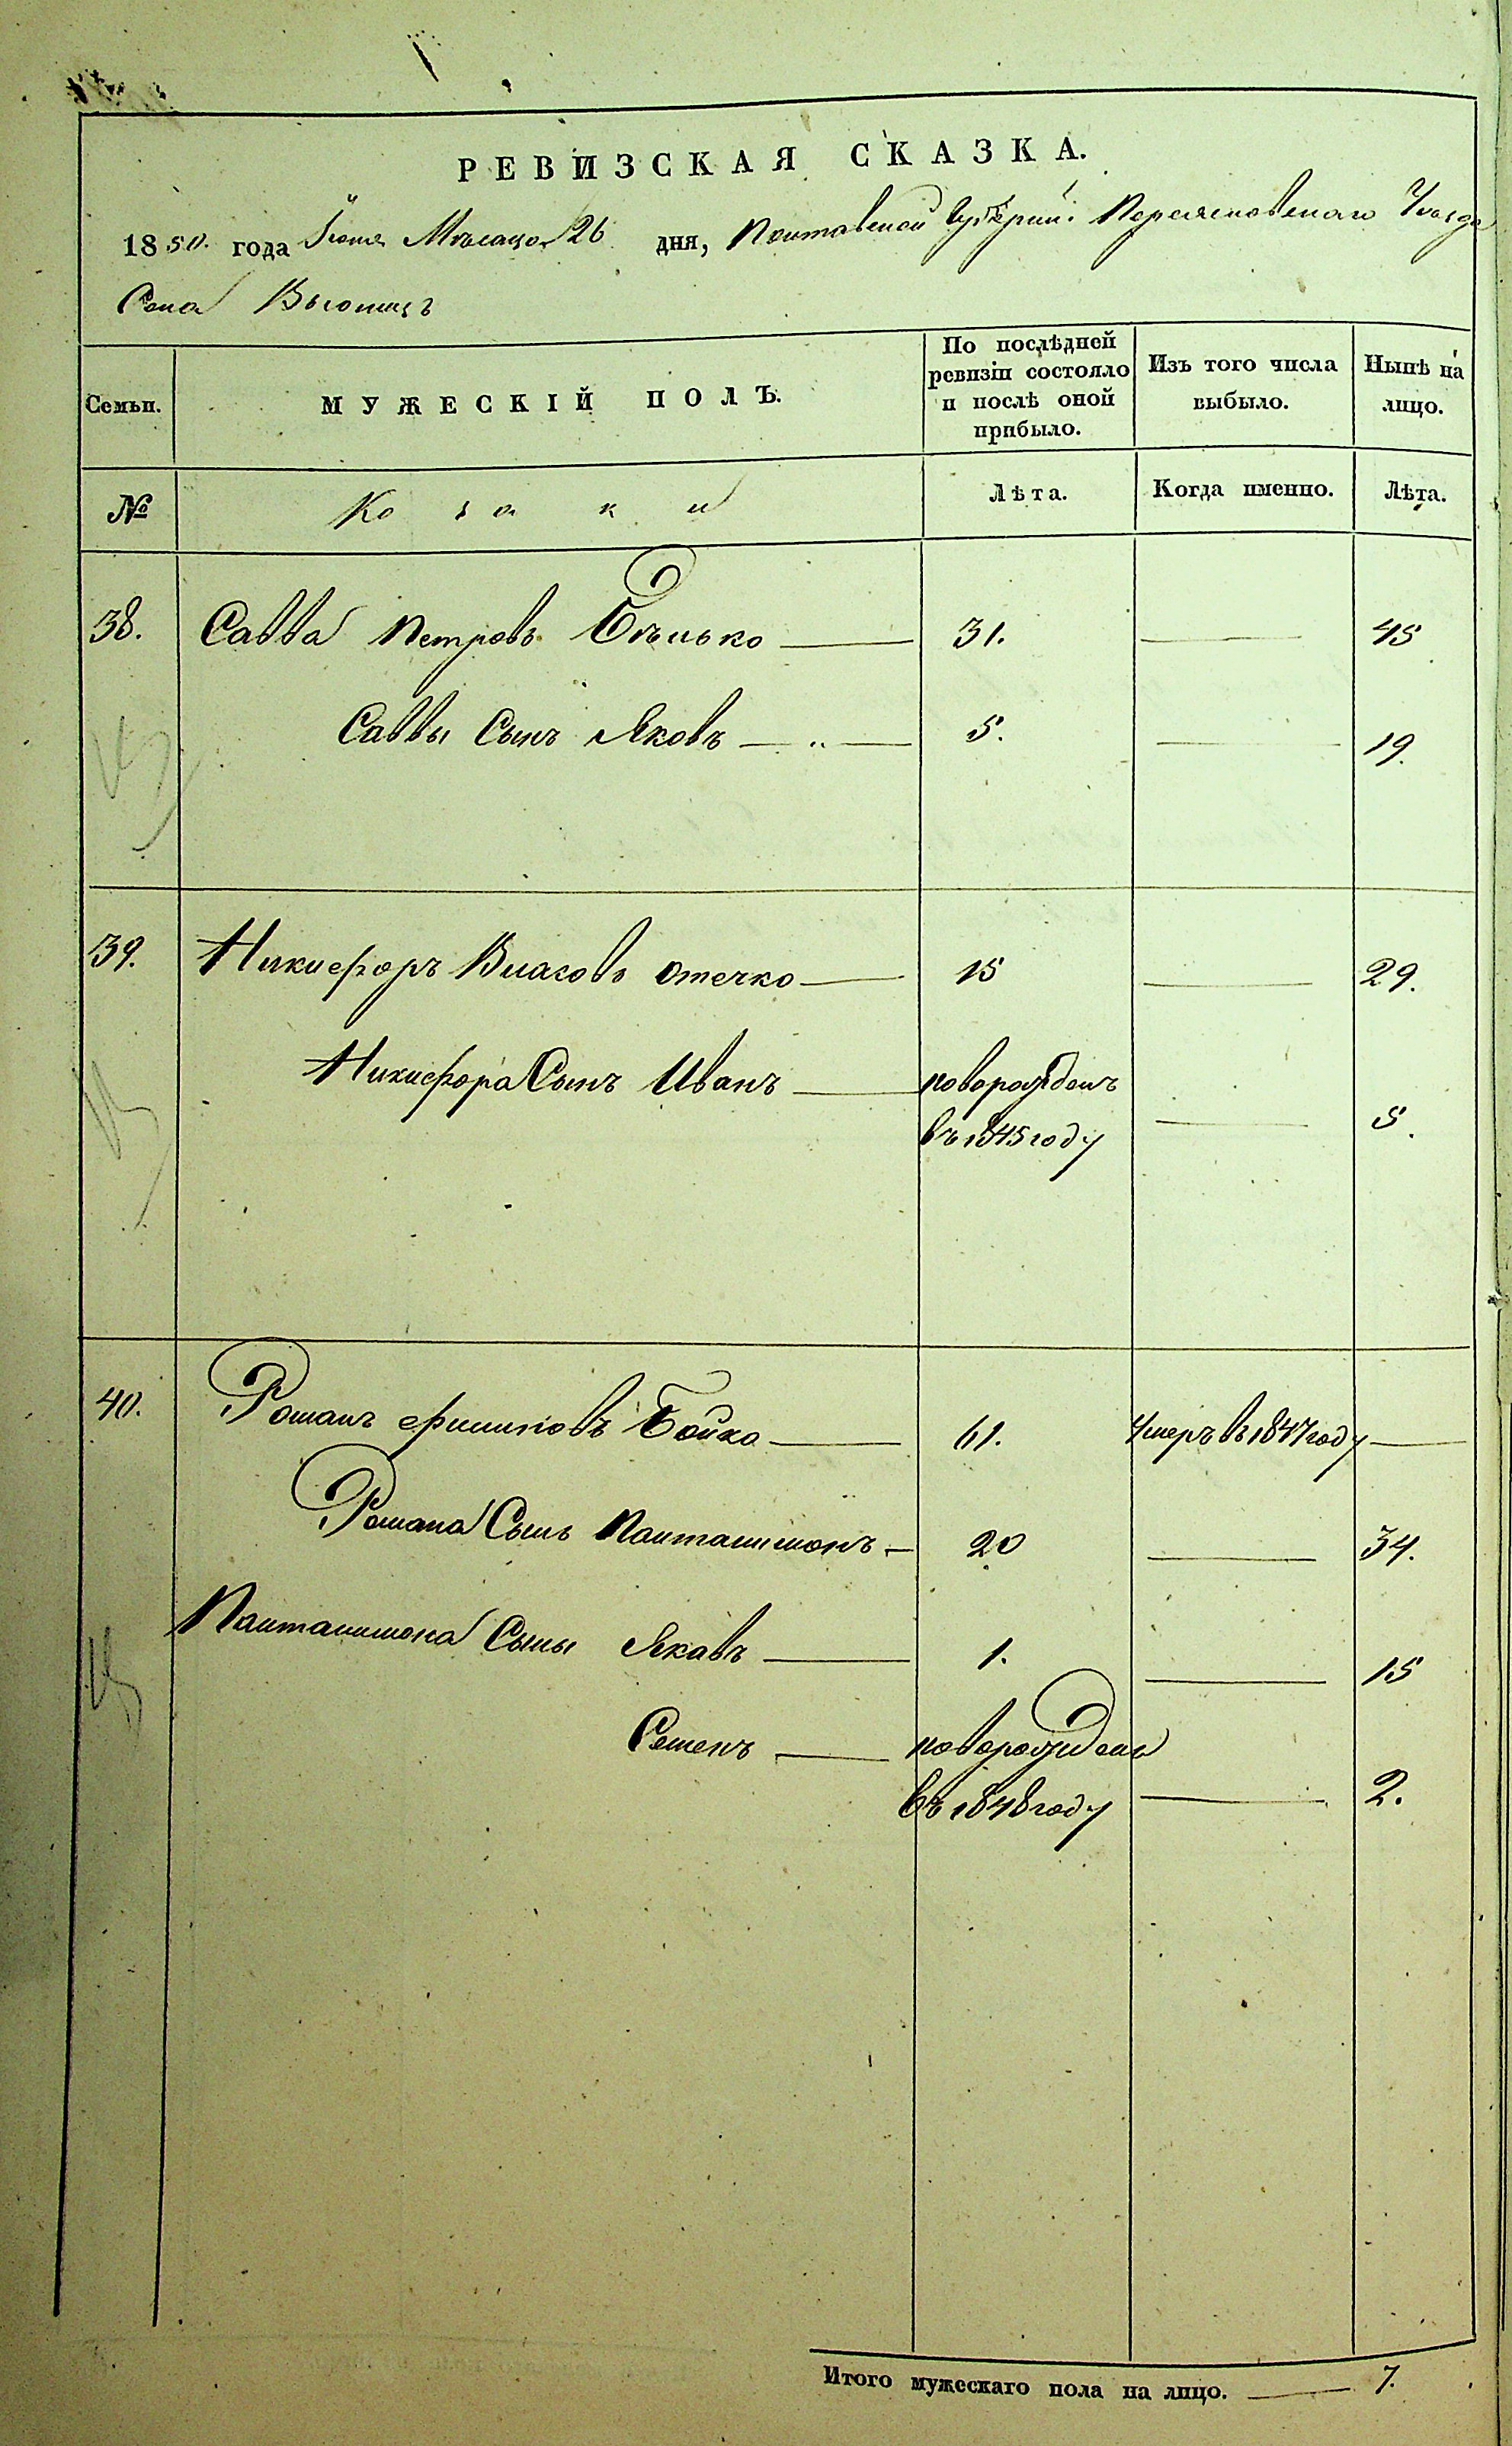 РЕВИЗСКАЯ СКАЗКА.
1850. года Іюня Мѣсяца 26 дня, Полтавской Губерніи Переяславскаго Уѣзда
Села
Семьи. МУЖЕСКІЙ ПОЛЪ. По послѣдней ревизіи состояло и послѣ оной прибыло. Изъ того числа выбыло. Нынѣ на лицо.
№ Козаки Лѣта. Когда именно. Лѣта.
38. Савва Петровъ Бѣлько 31. 45
Саввы Сынъ Яковъ 5. 19.
39. Никифоръ Власовъ Отечко 15 29.
Никифора Сынъ Иванъ новорожденъ
въ 1845 году 5.
40. Романъ Филиповъ Бойко 61. Умеръ въ 1847 году
Романа Сынъ Панталимонъ 20 34.
Панталимона Сыны Яковъ 1. 15
Семенъ новорожденъ
въ 1848 году 2.
Итого мужескаго пола на лицо. 7.